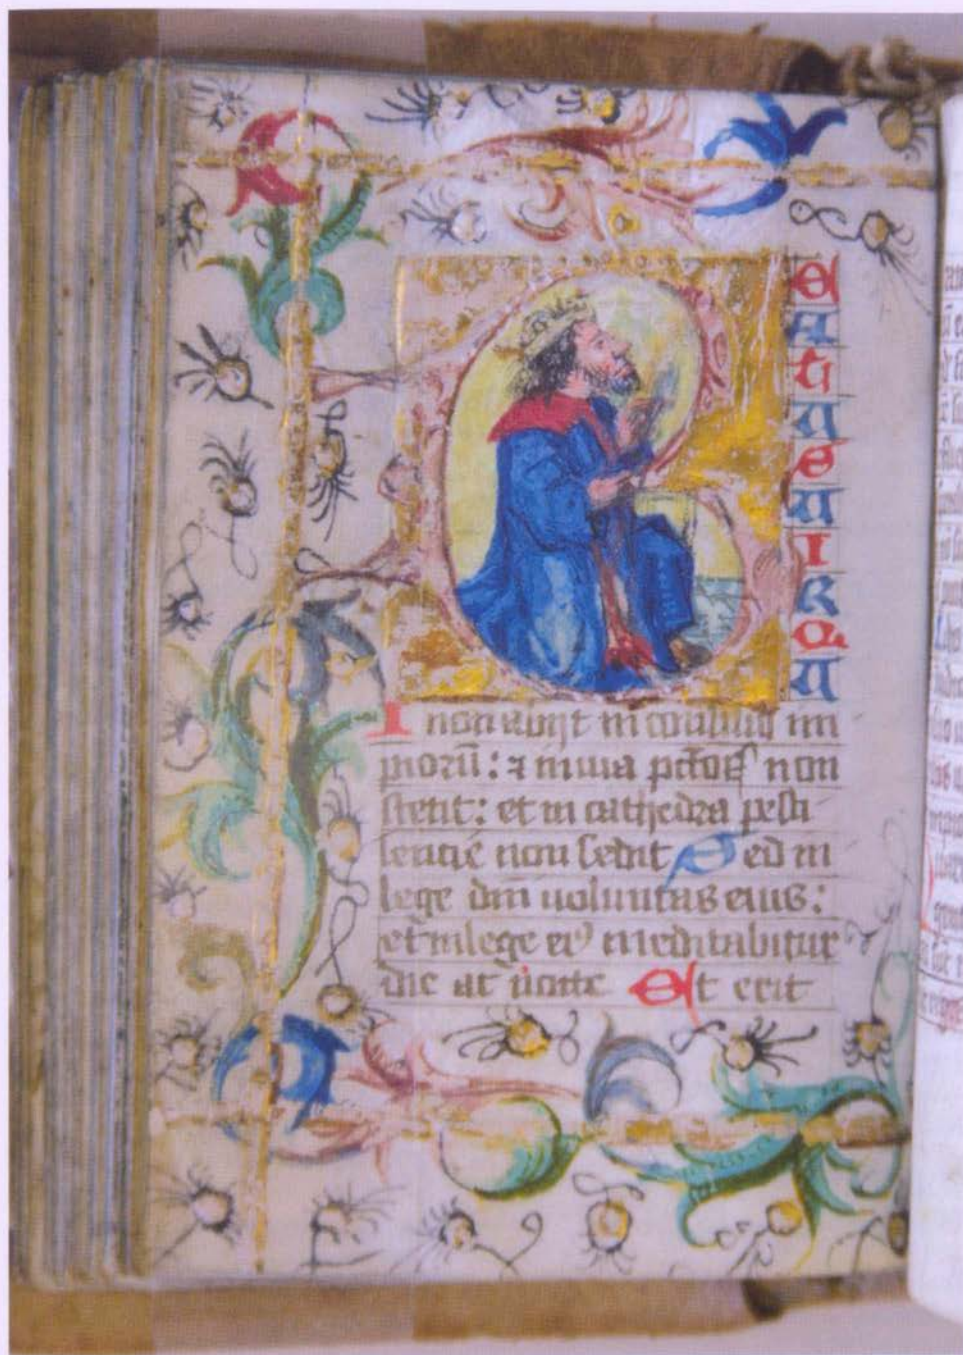 B
E
A
T
U
S
U
I
R
Q
U
I non abijt in consilio im
piorū: ⁊ in uia pctoꝝ non
stetit: et in cathedra pesti
lentie non sedit Sed in
lege dnī uoluntas eius:
et in lege eiꝰ meditabitur
die ac nocte Et erit